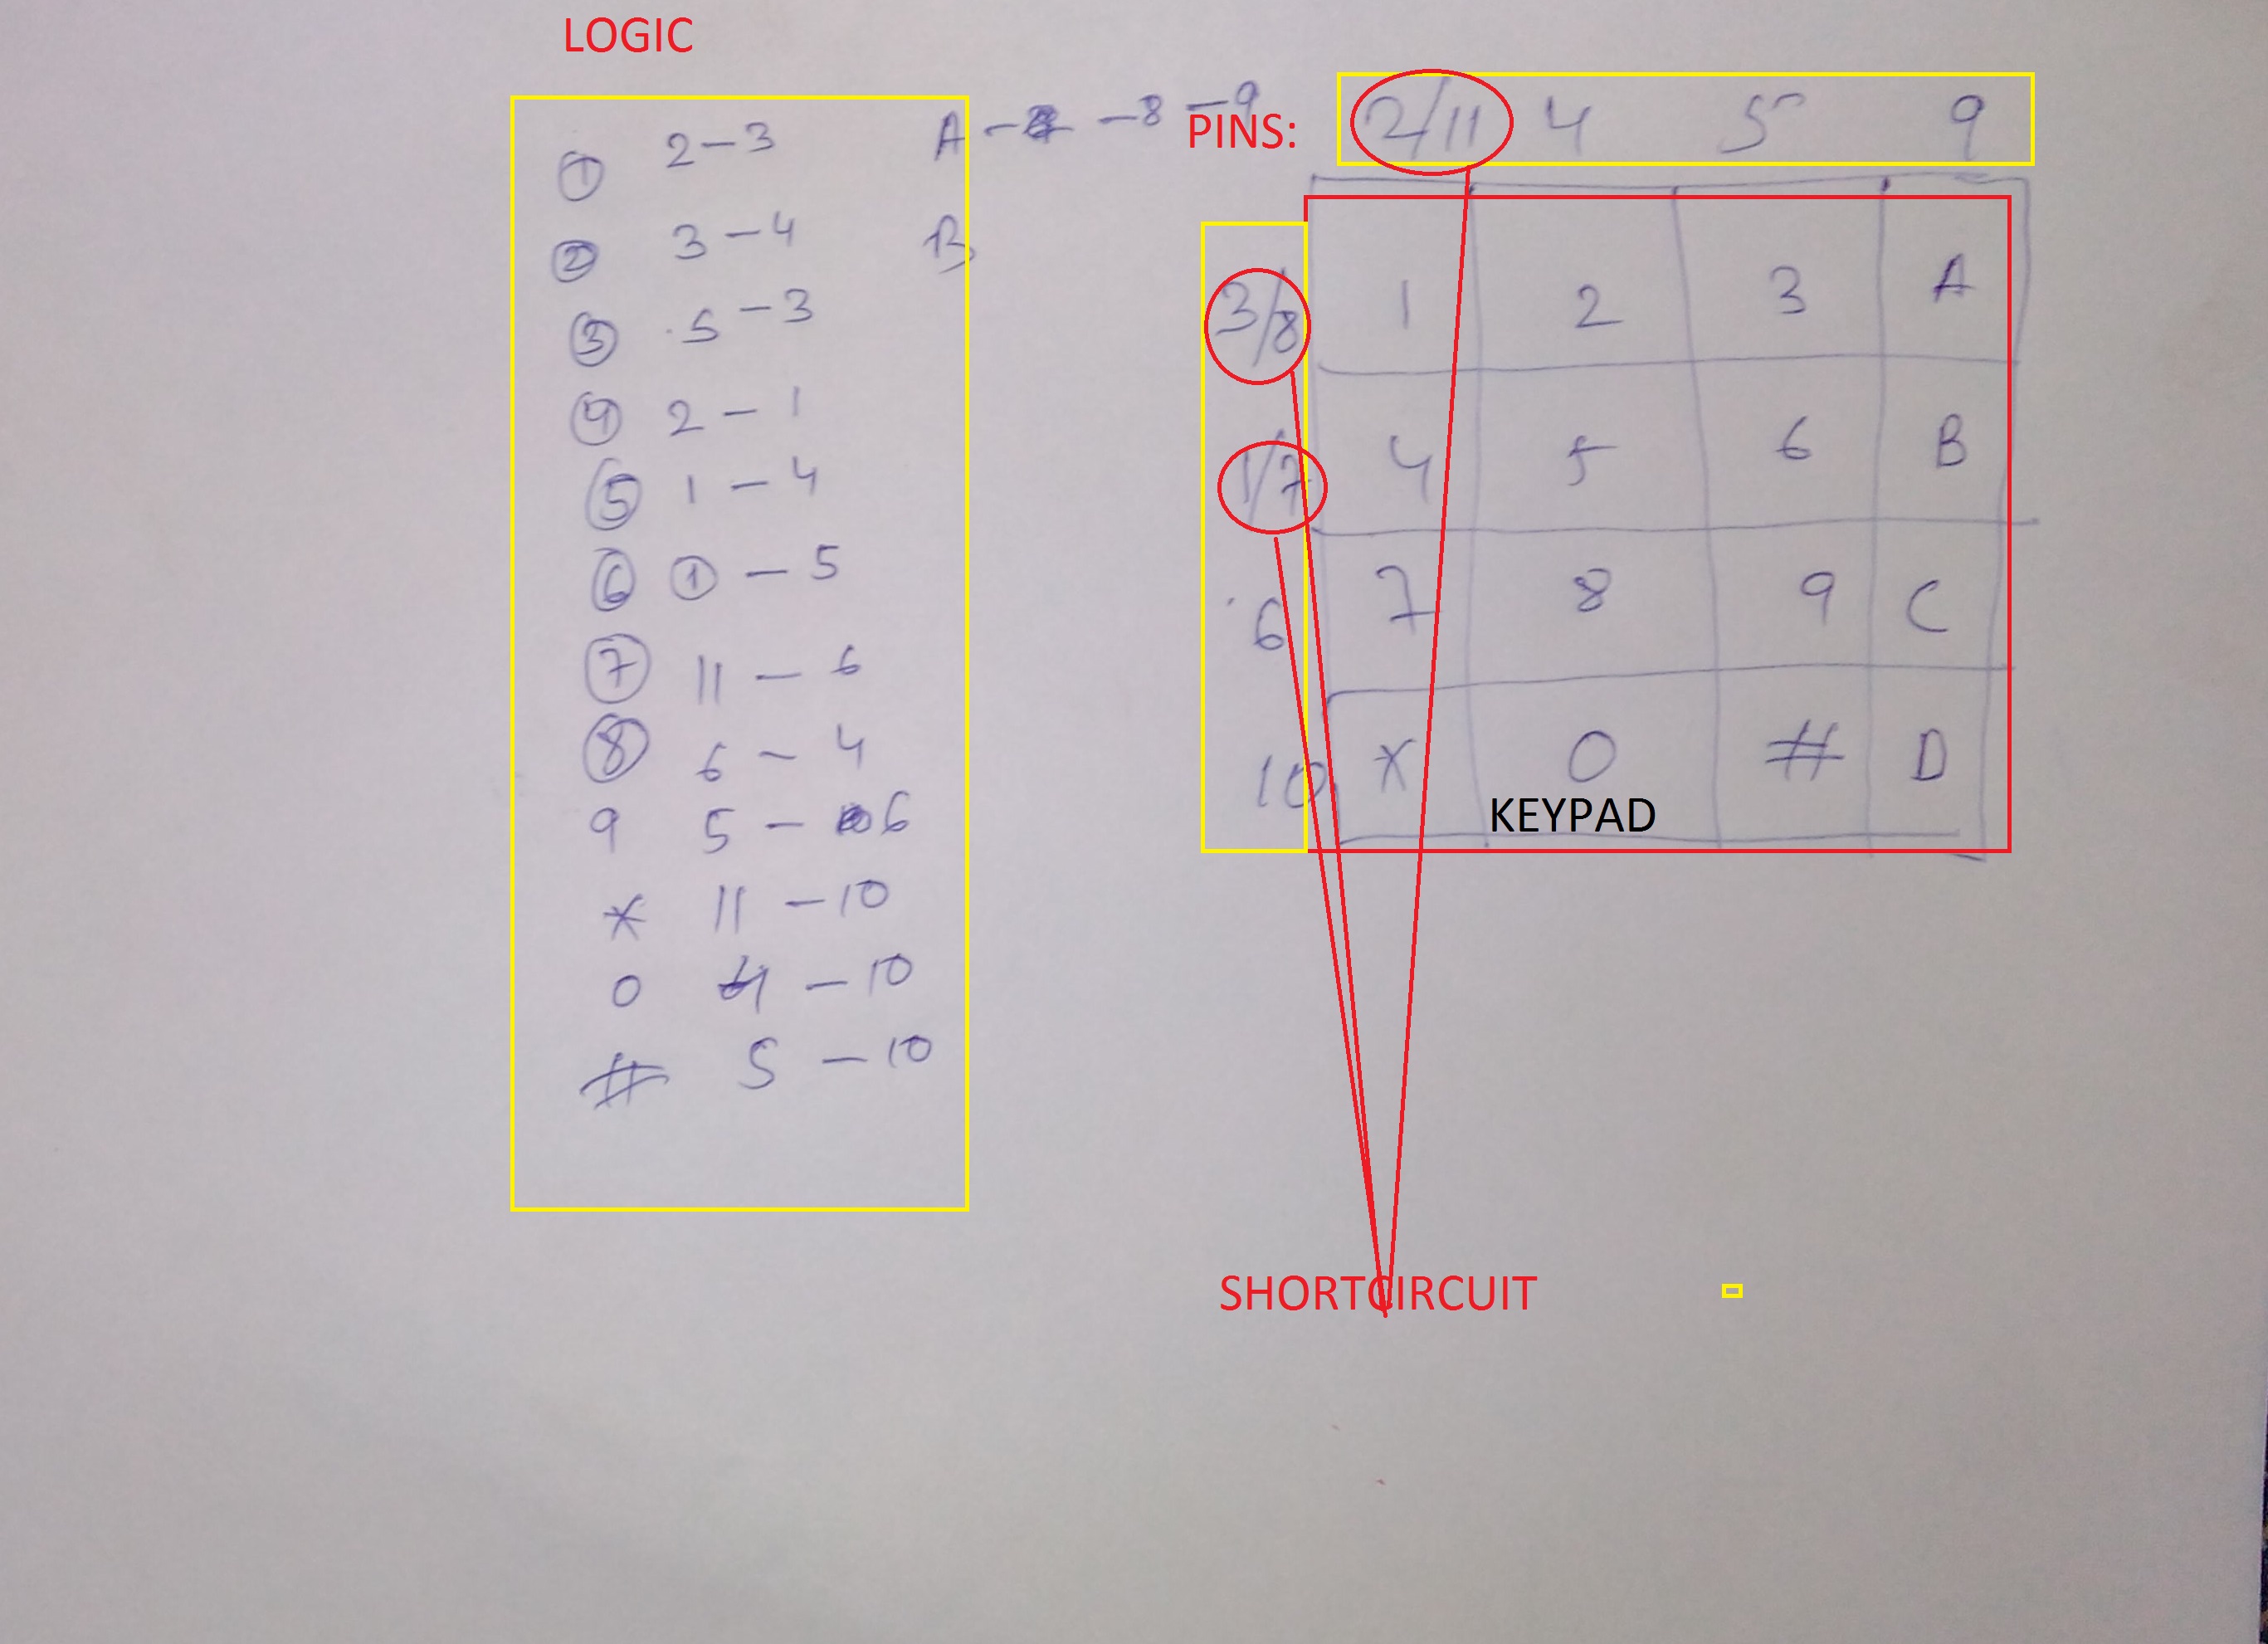 LOGIC
① 2 – 3
A – – 8 – 9
② 3 – 4
B
③ 5 – 3
④ 2 – 1
⑤ 1 – 4
⑥ ① – 5
⑦ 11 – 6
⑧ 6 – 4
9 5 – 6
* 11 – 10
0 4 – 10
# 5 – 10
PINS: 2/11 4 5 9
3/8 1 2 3 A
1/7 4 5 6 B
6 7 8 9 C
10 * 0 # D
KEYPAD
SHORTCIRCUIT